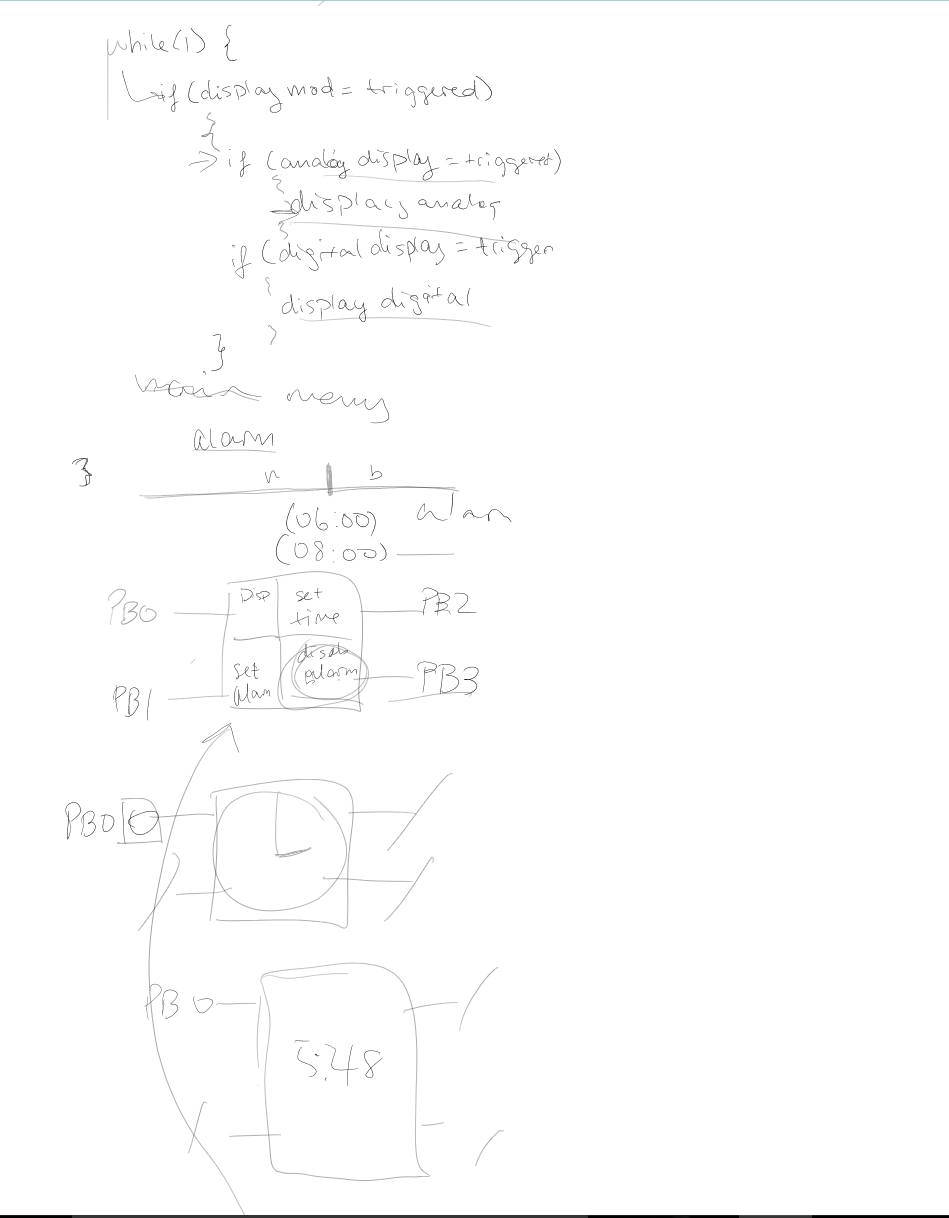 while(1) {
if (display mod = triggered)
{
if (analog display = triggered)
{
display analog
}
if (digital display = trigger
{
display digital
}
}
alarm
}
n b
(06:00) alarm
(08:00)
PB0 Disp set time PB2
PB1 set alam alarm PB3
PB0
PB0
5:48